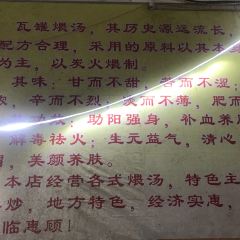 瓦罐煨汤,其历史源远流长,
配方合理,采用的原料以其本
为主,以炭火煨制。
其味:甘而不甜 苦而不涩;
辛而不烈;淡而不薄,肥而
助阳强身,补血养
解毒祛火;生元益气,清心
美颜养肤。
本店经营各式煨汤,特色主
炒,地方特色,经济实惠,
临惠顾!